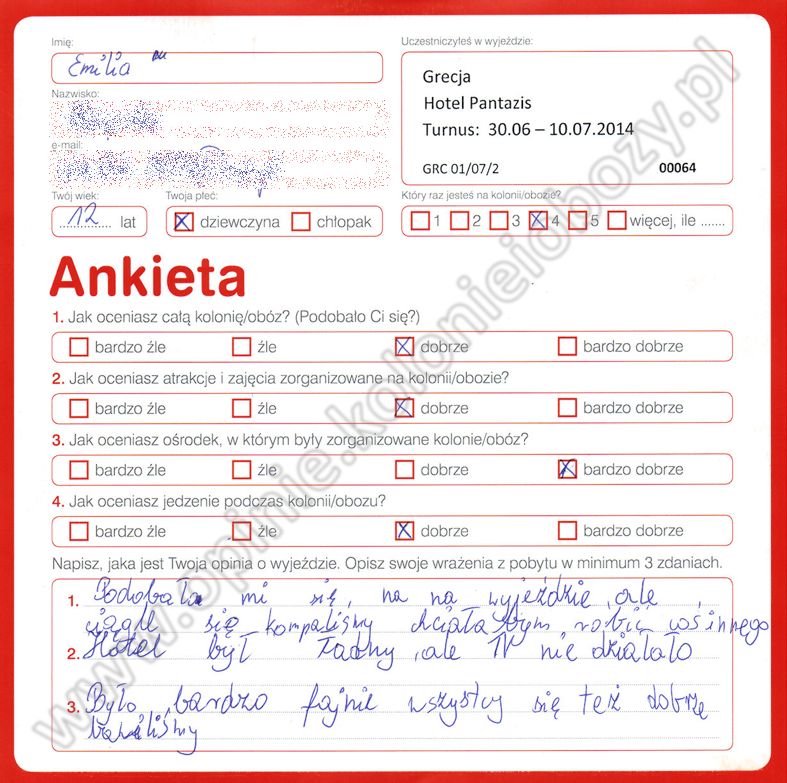 Imię:
Emilia
Uczestniczyłeś w wyjeździe:
Grecja
Hotel Pantazis
Turnus: 30.06 – 10.07.2014
GRC 01/07/2 00064
Nazwisko:
e-mail:
Twój wiek:
12 lat
Twoja płeć:
dziewczyna chłopak
Który raz jesteś na kolonii/obozie?
1 2 3 4 5 więcej, ile .......
Ankieta
1. Jak oceniasz całą kolonię/obóz? (Podobało Ci się?)
bardzo źle źle dobrze bardzo dobrze
2. Jak oceniasz atrakcje i zajęcia zorganizowane na kolonii/obozie?
bardzo źle źle dobrze bardzo dobrze
3. Jak oceniasz ośrodek, w którym były zorganizowane kolonie/obóz?
bardzo źle źle dobrze bardzo dobrze
4. Jak oceniasz jedzenie podczas kolonii/obozu?
bardzo źle źle dobrze bardzo dobrze
Napisz, jaka jest Twoja opinia o wyjeździe. Opisz swoje wrażenia z pobytu w minimum 3 zdaniach.
1. Podobała mi się, na na wyjeździe, ale
ciągle się kompaliśmy chciała bym robić coś innego
2. Hotel był ładny, ale TV nie działało
3. Było bardzo fajnie wszyscy się też dobrze
bawiliśmy
www.opinie.kolonieiobozy.pl